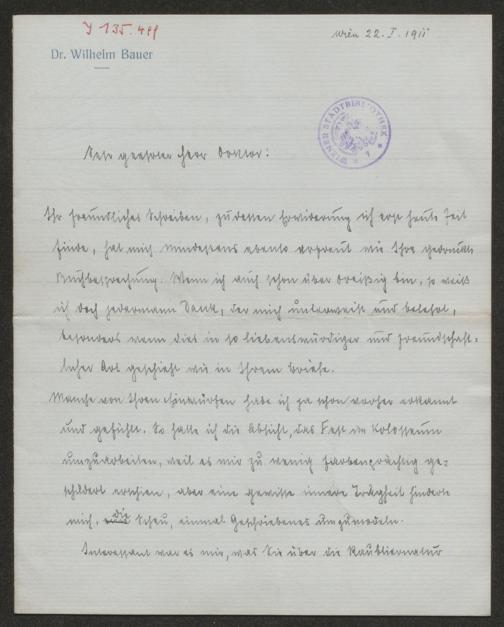 J 135.499
Wien 22. I. 1911
Dr. Wilhelm Bauer
WIENER STADTBIBLIOTHEK
Sehr geehrter Herr Doktor:
Ihr freundliches Schreiben, zu dessen Erwiderung ich erst heute Zeit
finde, hat mich mindestens ebenso erfreut wie Ihre gedruckte
Buchbesprechung. Wenn ich auch schon über dreißig bin, so weiß
ich doch jedermann Dank, der mich unterweist und belehrt,
besonders wenn dies in so liebenswürdiger und freundschaft-
licher Art geschieht wie in Ihrem Briefe.
Manche von Ihren Einwürfen habe ich ja schon vorher erkannt
und gefühlt. So hatte ich die Absicht, das Fest im Kolosseum
umzuarbeiten, weil es mir zu wenig farbenprächtig ge-
schildert erschien, aber eine gewisse innere Trägheit hinderte
mich, die Scheu, einmal Geschriebenes umzumodeln.
Interessant war es mir, was Sie über die Raubtiernatur